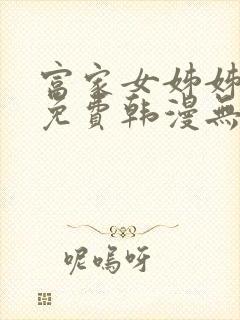 富家女姊姊
免費韩漫無
呢嗚呀